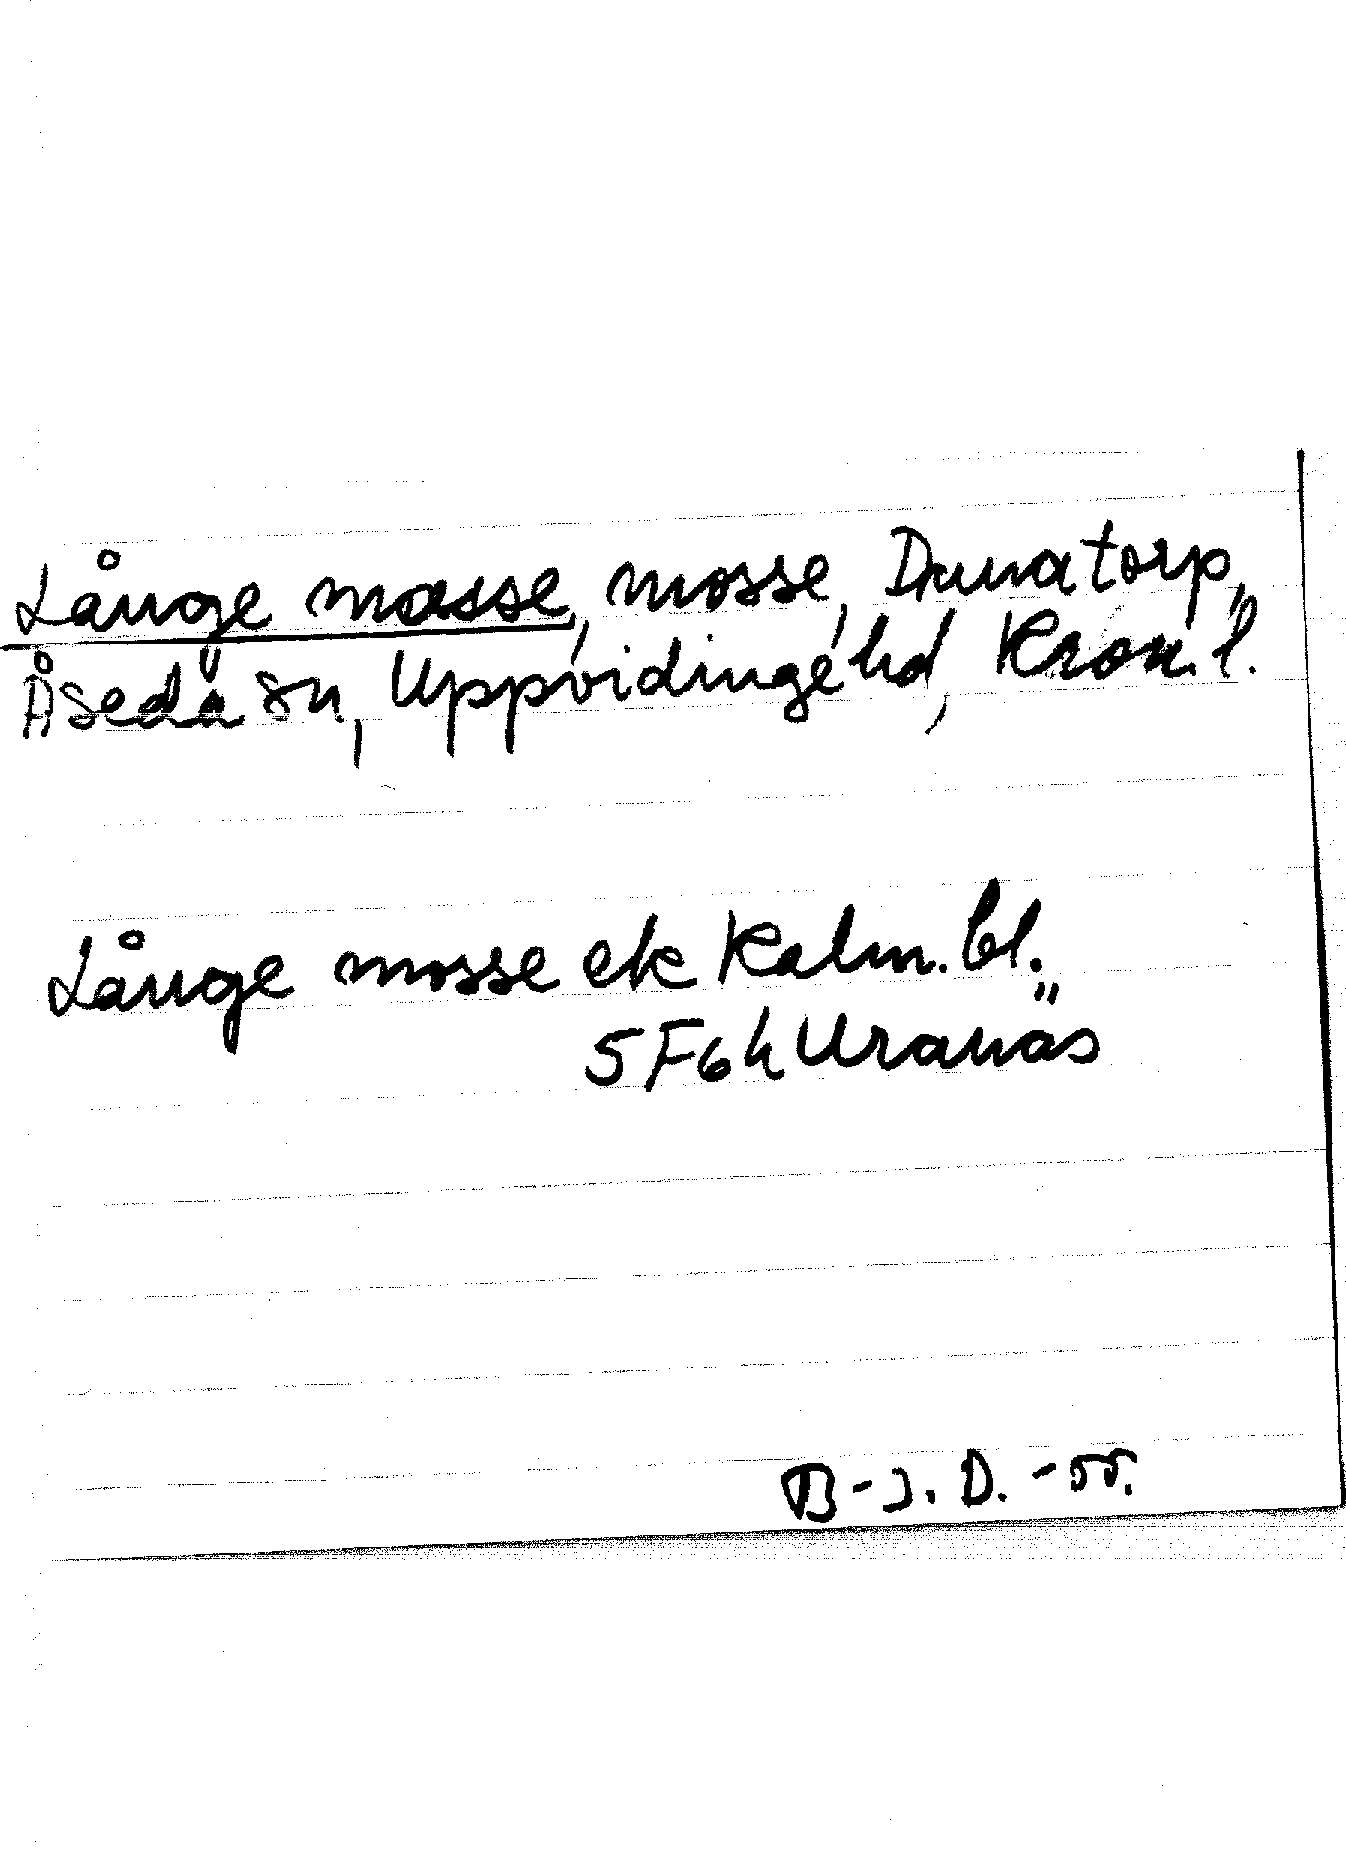 Långe mosse, mosse, Drunatorp,
Åseda sn, Uppvidinge hd, Kron. l.
Långe mosse ek Kalm. bl.
5F6h Uranäs
B-J. D. -55.